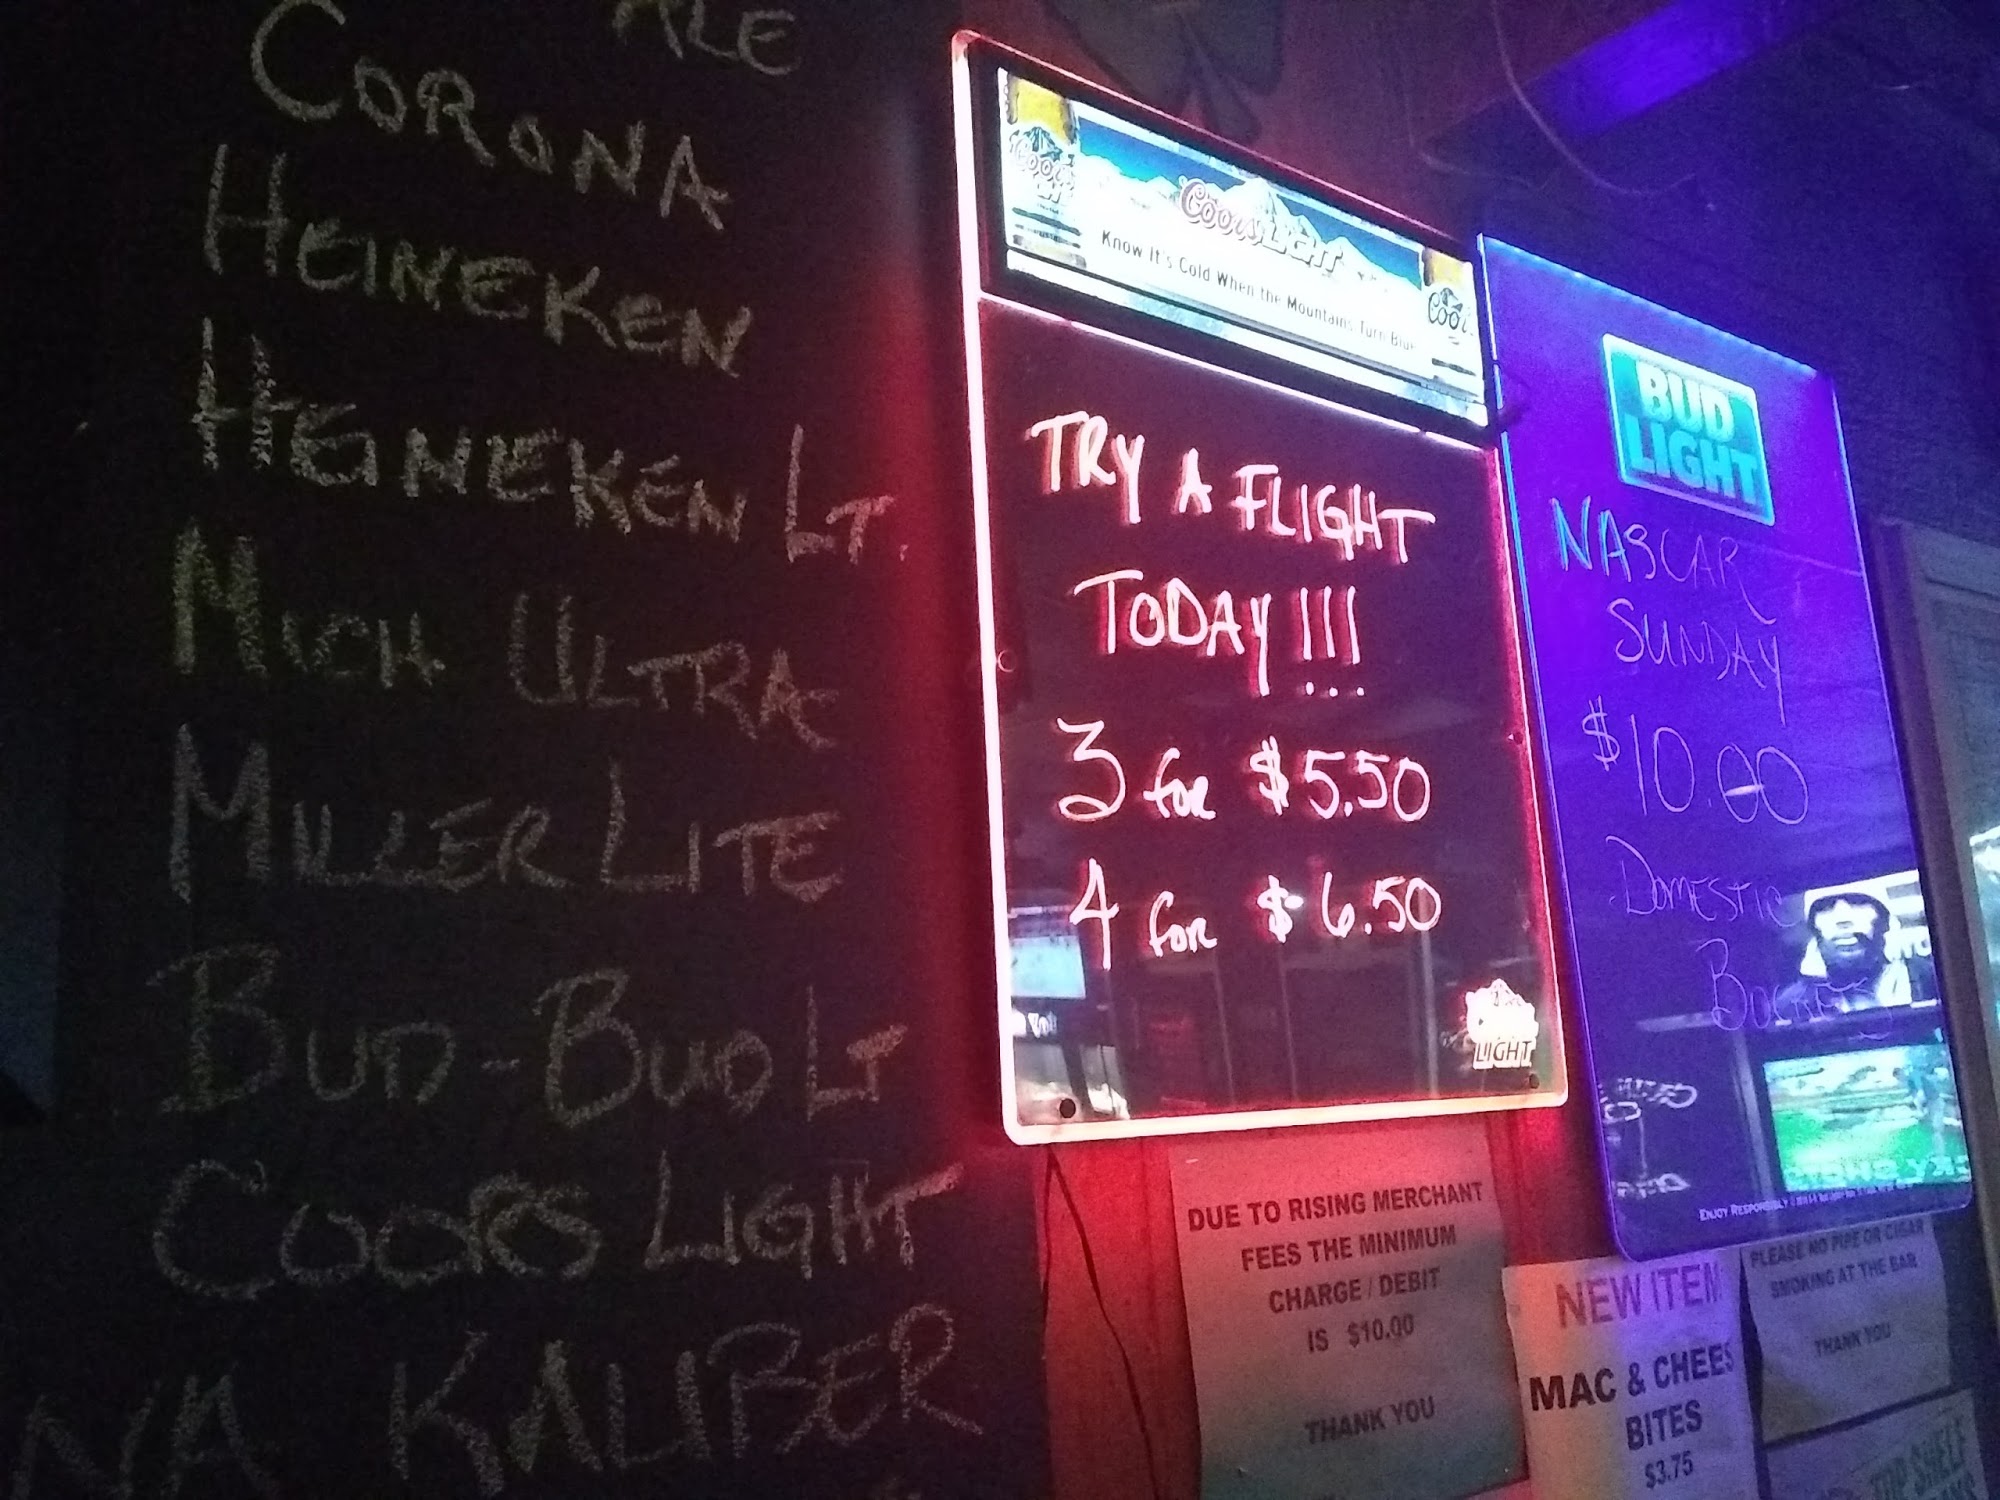 ALE
CORONA
HEINEKEN
HEINEKEN LT.
MICH ULTRA
MILLER LITE
BUD-BUD LT
COORS LIGHT
NA KALIBER
Coors LIGHT
Know It's Cold When the Mountains Turn Blue
TRY A FLIGHT
TODAY!!!
3 for $5.50
4 for $6.50
LIGHT
DUE TO RISING MERCHANT
FEES THE MINIMUM
CHARGE / DEBIT
IS $10.00
THANK YOU
BUD
LIGHT
NASCAR
SUNDAY
$10.00
DOMESTIC
BUCKETS
ENJOY RESPONSIBLY
NEW ITEM
MAC & CHEES
BITES
$3.75
PLEASE NO PIPE OR CIGAR
SMOKING AT THE BAR
THANK YOU
TOP SHELF